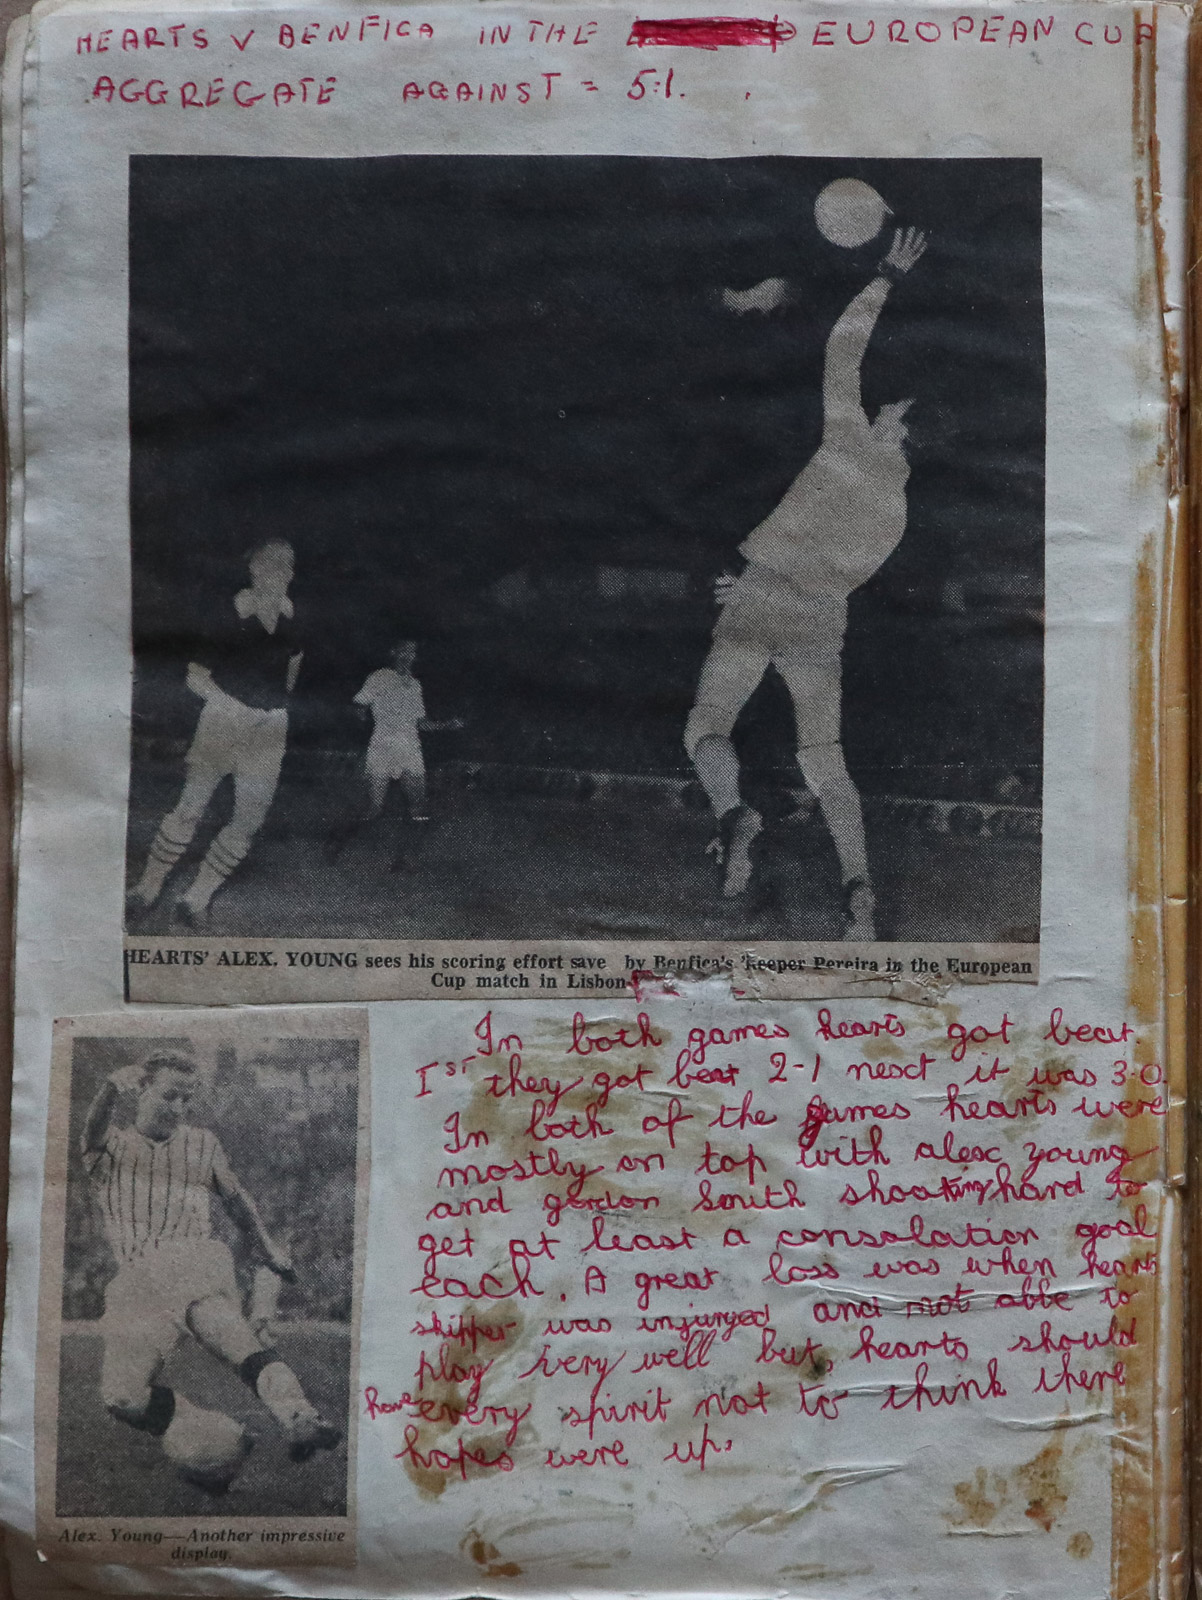 HEARTS V BENFICA IN THE EUROPEAN CUP
AGGREGATE AGAINST = 5:1.
HEARTS' ALEX. YOUNG sees his scoring effort save by Benfica's 'keeper Pereira in the European
Cup match in Lisbon
In both games hearts got beat.
Ist they got beat 2-1 next it was 3-0.
In both of the games hearts were
mostly on top with alex young
and gordon Smith shooting hard to
get at least a consolation goal
each. A great loss was when hearts
skipper was injuryed and not abbe to
play very well but, hearts should
have every spirit not to think there
hopes were up.
Alex. Young—Another impressive
display.